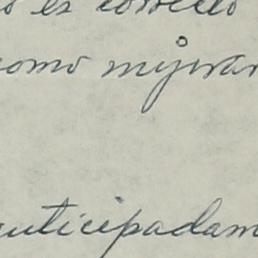 o es correcto
como mejorar
anticipadam